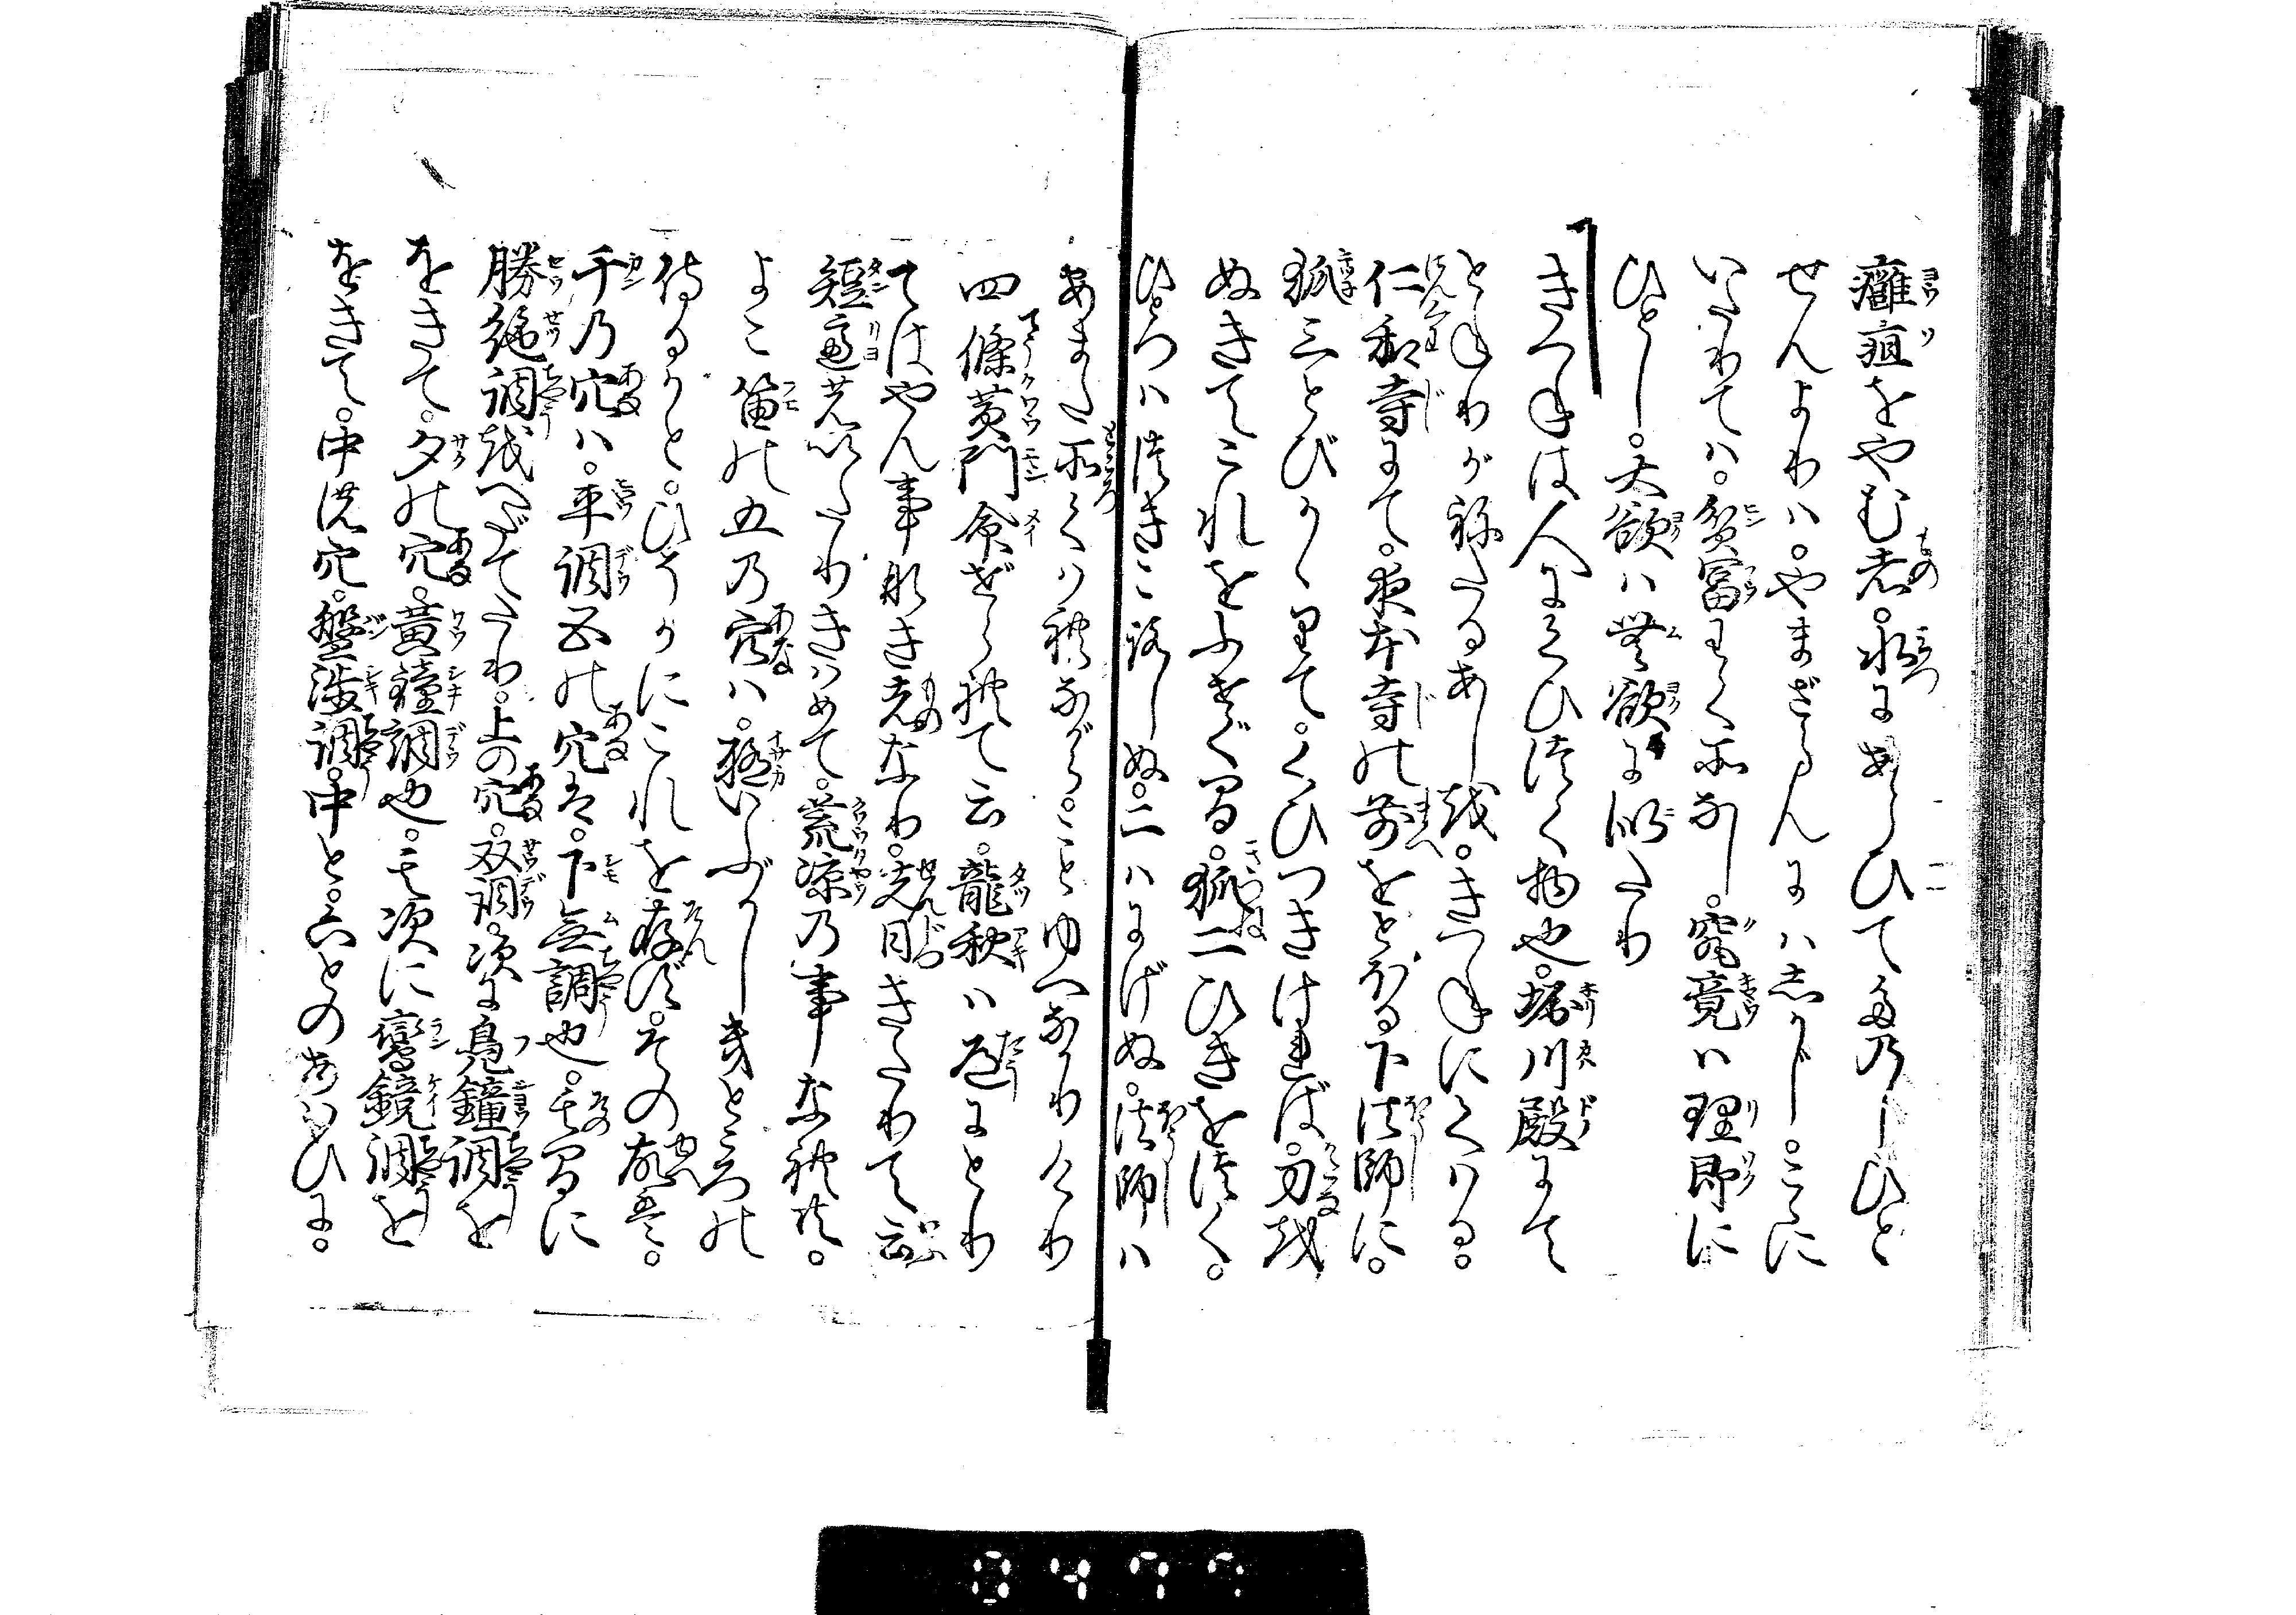 癰疽をやむ者。水にあらひてたのしひと
せんよりハ。やまざらんにハしかじ。こゝに
いたりてハ。貧富わく所なし。究竟ハ理即に
ひとし。大欲ハ無欲に似たり
きつねは人にくひつく物也。堀川殿にて
とねりがねたるあしを。きつねにくハる。
仁和寺にて。夜本寺の前をとほる下法師に。
狐三とびかゝりて。くひつきければ。刀を
ぬきてこれをふせぐ間。狐二ひきをつく。
ひとつハつきころしぬ。二ハにげぬ。法師ハ
あまた所くハれながら。ことゆへなかりけり
四條黄門命ぜられて云。龍秋ハ道にとり
てはやん事なき者なり。先日きたりて云
短慮のいたりきハめて。荒涼の事なれ共。
よこ笛の五の穴ハ。聊いぶかしきところの
侍るかと。ひそかにこれを存ず。その故は。
干の穴ハ。平調五の穴は。下無調也。其間に
勝絶調をへだてたり。上の穴。双調。次に鳧鐘調を
をきて。夕の穴。黄鐘調也。其次に鸞鏡調を
をきて。中の穴。盤渉調。中と。六とのあはひに。
0477